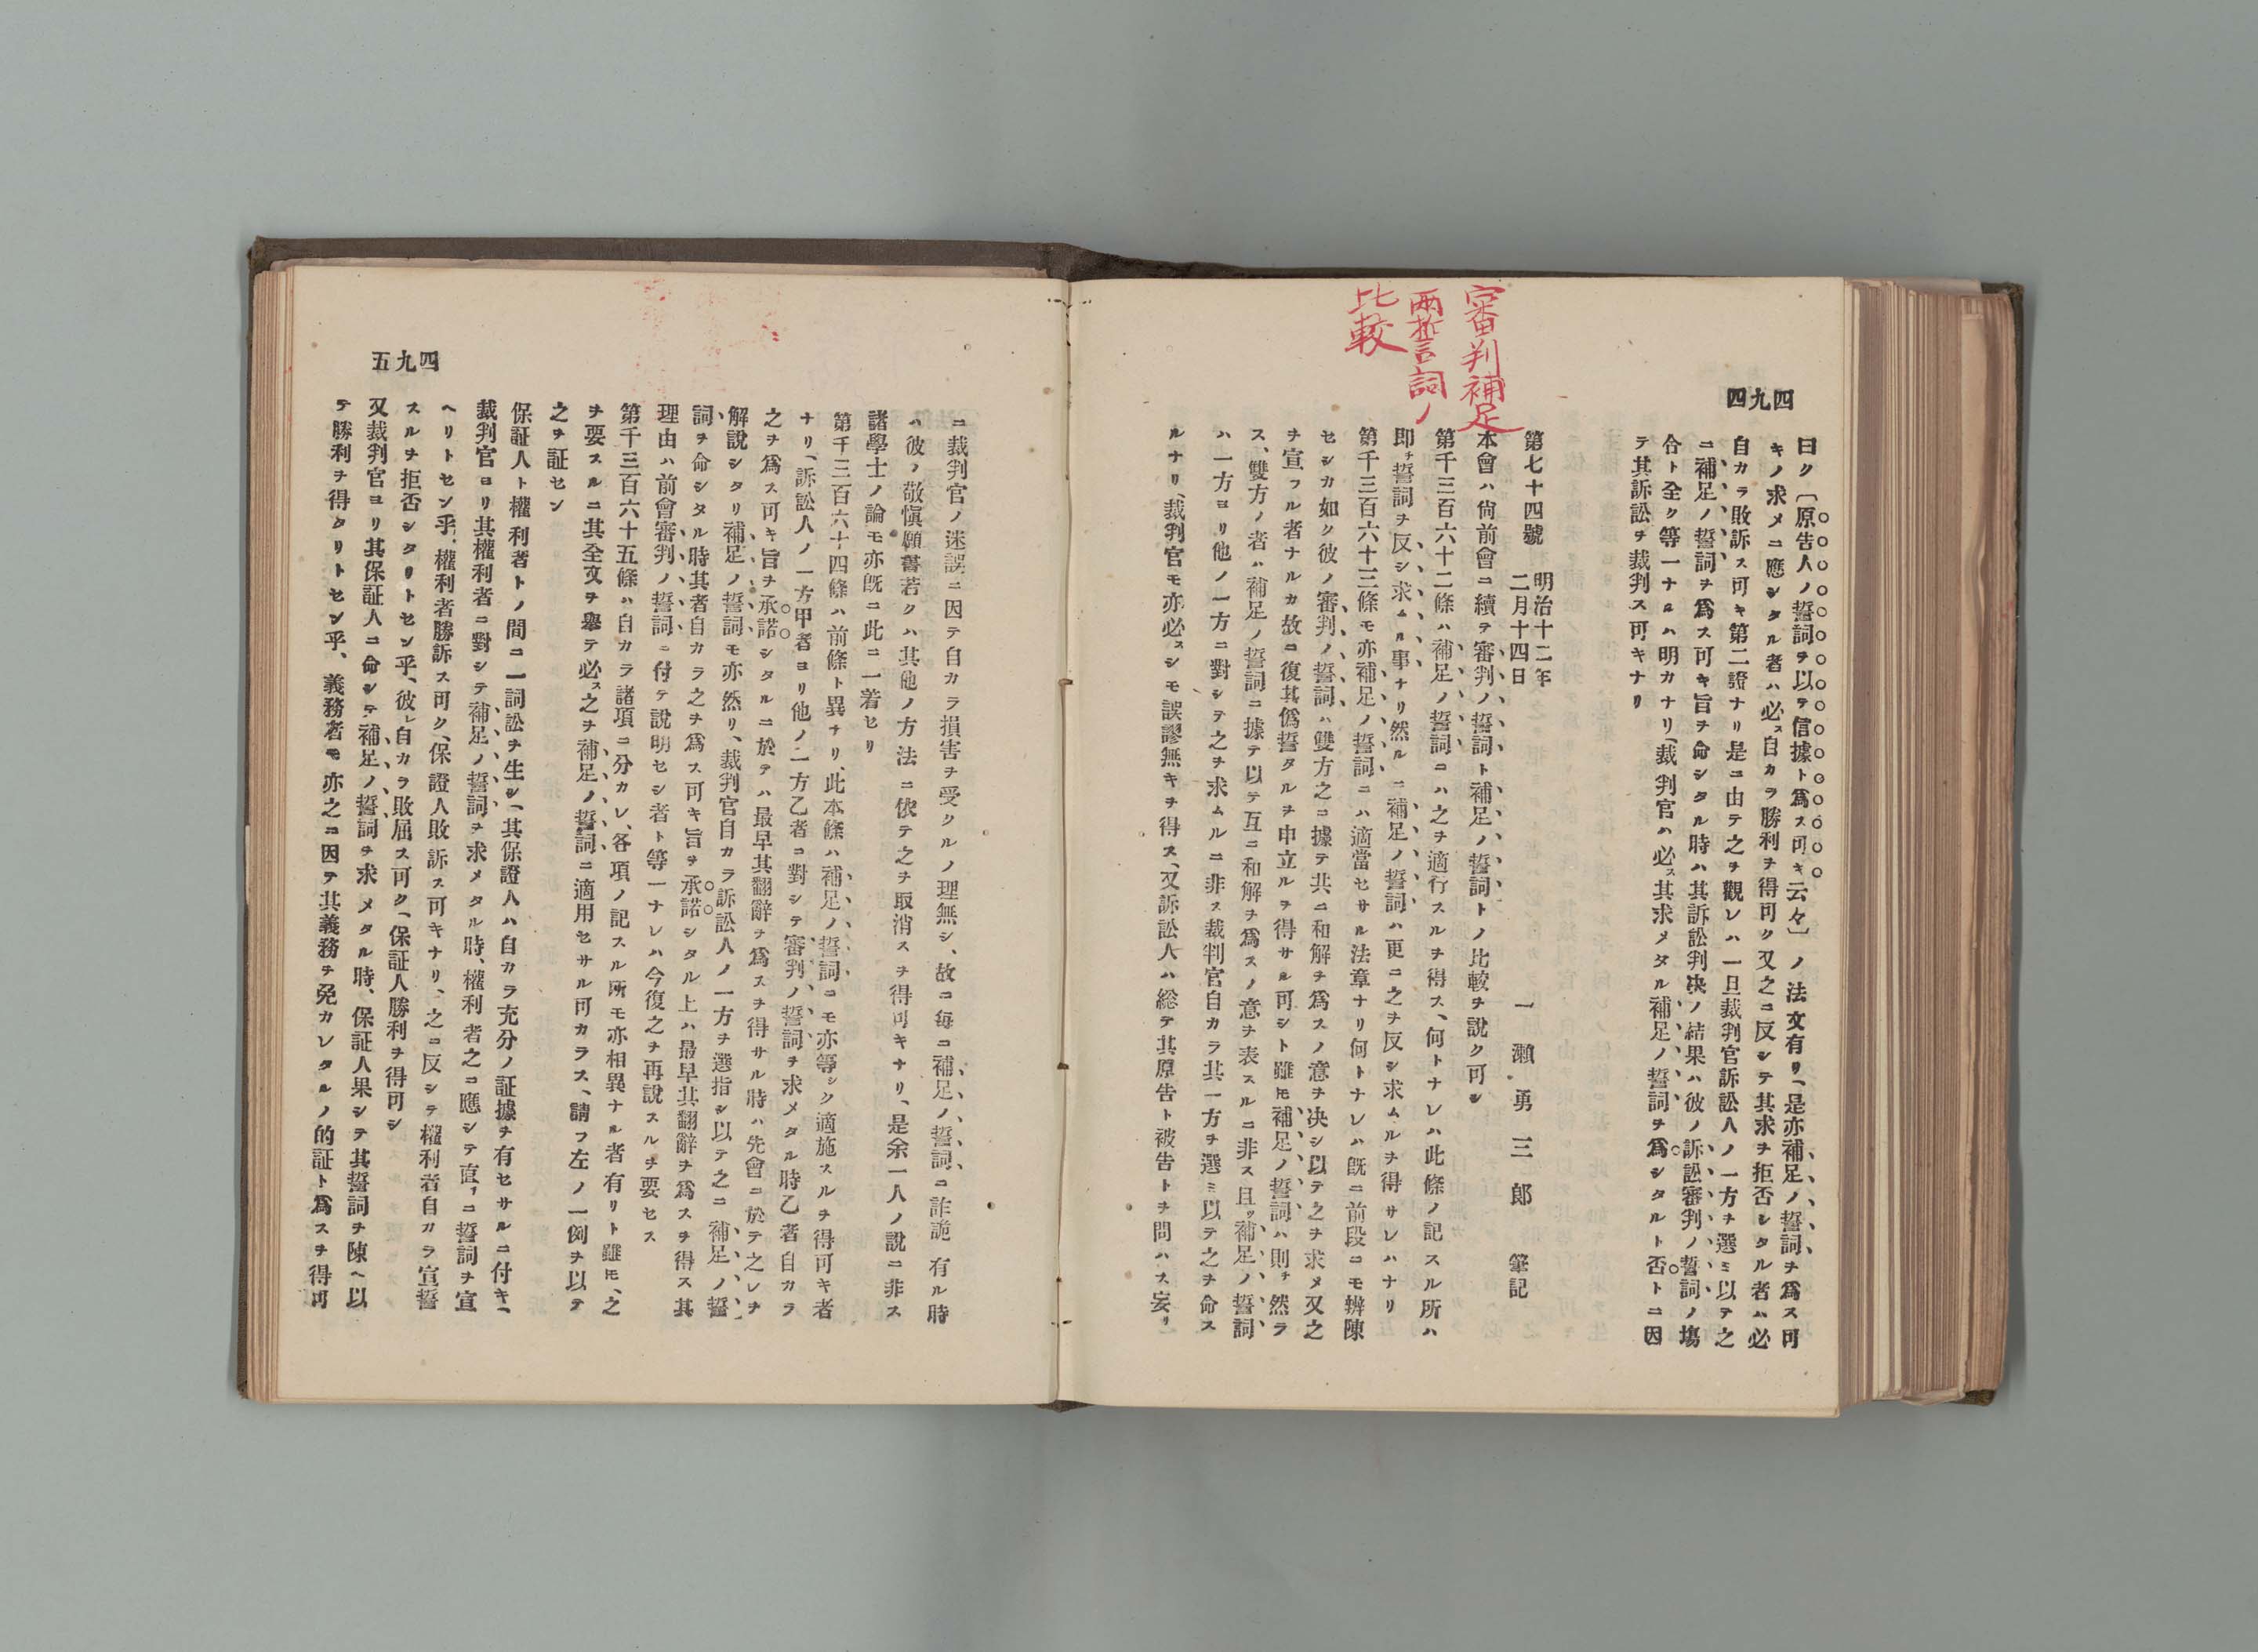 四九四
審判補足
兩誓詞ノ
比較
曰ク〔原告人ノ誓詞ヲ以テ信據ト爲ス可キ云々〕ノ法文有リ、是亦補足ノ誓詞ヲ爲ス可
キノ求メニ應シタル者ハ必ス自カラ勝利ヲ得可ク又之ニ反シテ其求ヲ拒否シタル者ハ必
自カラ敗訴ス可キ第二證ナリ是ニ由テ之ヲ觀レハ一旦裁判官訴訟人ノ一方ヲ選ミ以テ之
ニ補足ノ誓詞ヲ爲ス可キ旨ヲ命シタル時ハ其訴訟判決ノ結果ハ彼ノ訴訟審判ノ誓詞ノ塲
合ト全ク等一ナルハ明カナリ、裁判官ハ必ス其求メタル補足ノ誓詞ヲ爲シタルト否トニ因
テ其訴訟ヲ裁判ス可キナリ
第七十四號 明治十二年二月十四日 一瀬勇三郎 筆記
本會ハ尙前會ニ續テ審判ノ誓詞ト補足ノ誓詞トノ比較ヲ說ク可シ
第千三百六十二條ハ補足ノ誓詞ニハ之ヲ適行スルヲ得ス、何トナレハ此條ノ記スル所ハ
即チ誓詞ヲ反シ求ムル事ナリ然ルニ補足ノ誓詞ハ更ニ之ヲ反シ求ムルヲ得サレハナリ
第千三百六十三條モ亦補足ノ誓詞ニハ適當セサル法章ナリ何トナレハ既ニ前段ニモ辨陳
セシカ如ク彼ノ審判ノ誓詞ハ雙方之ニ據テ共ニ和解ヲ爲スノ意ヲ決シ以テ之ヲ求メ又之
ヲ宣フル者ナルカ故ニ復其僞誓タルヲ申立ルヲ得サル可シト雖モ補足ノ誓詞ハ則チ然ラ
ス、雙方ノ者ハ補足ノ誓詞ニ據テ以テ互ニ和解ヲ爲スノ意ヲ表スルニ非ス且ツ補足ノ誓詞
ハ一方ヨリ他ノ一方ニ對シテ之ヲ求ムルニ非ス裁判官自カラ其一方ヲ選ミ以テ之ヲ命ス
ルナリ、裁判官モ亦必スシモ誤謬無キヲ得ス、又訴訟人ハ總テ其原告ト被告トヲ問ハス妄リ
四九五
ニ裁判官ノ迷誤ニ因テ自カラ損害ヲ受クルノ理無シ、故ニ每ニ補足ノ誓詞ニ詐詭有ル時
ハ彼ノ敬愼願書若クハ其他ノ方法ニ依テ之ヲ取消スヲ得可キナリ、是余一人ノ說ニ非ス
諸學士ノ論モ亦既ニ此ニ一着セリ
第千三百六十四條ハ前條ト異ナリ、此本條ハ補足ノ誓詞ニモ亦等シク適施スルヲ得可キ者
ナリ、訴訟人ノ一方甲者ヨリ他ノ一方乙者ニ對シテ審判ノ誓詞ヲ求メタル時乙者自カラ
之ヲ爲ス可キ旨ヲ承諾シタルニ於テハ最早其翻辭ヲ爲スヲ得サル時ハ先會ニ於テ之レヲ
解說シタリ補足ノ誓詞モ亦然リ、裁判官自カラ訴訟人ノ一方ヲ選指シ以テ之ニ補足ノ誓
詞ヲ命シタル時其者自カラ之ヲ爲ス可キ旨ヲ承諾シタル上ハ最早其翻辭ヲ爲スヲ得ス其
理由ハ前會審判ノ誓詞ニ付テ說明セシ者ト等一ナレハ今復之ヲ再說スルヲ要セス
第千三百六十五條ハ自カラ諸項ニ分カレ、各項ノ記スル所モ亦相異ナル者有リト雖モ、之
ヲ要スルニ其全文ヲ擧テ必ス之ヲ補足ノ誓詞ニ適用セサル可カラス、請フ左ノ一例ヲ以テ
之ヲ証セン
保証人ト權利者トノ間ニ一詞訟ヲ生シ、其保證人ハ自カラ充分ノ証據ヲ有セサルニ付キ、
裁判官ヨリ其權利者ニ對シテ補足ノ誓詞ヲ求メタル時、權利者之ニ應シテ直チニ誓詞ヲ宣
ヘリトセン乎、權利者勝訴ス可ク、保證人敗訴ス可キナリ、之ニ反シテ權利者自カラ宣誓
スルヲ拒否シタリトセン乎、彼レ自カラ敗屈ス可ク、保証人勝利ヲ得可シ
又裁判官ヨリ其保証人ニ命シテ補足ノ誓詞ヲ求メタル時、保証人果シテ其誓詞ヲ陳ヘ以
テ勝利ヲ得タリトセン乎、義務者モ亦之ニ因テ其義務ヲ免カレタルノ的証ト爲スヲ得可